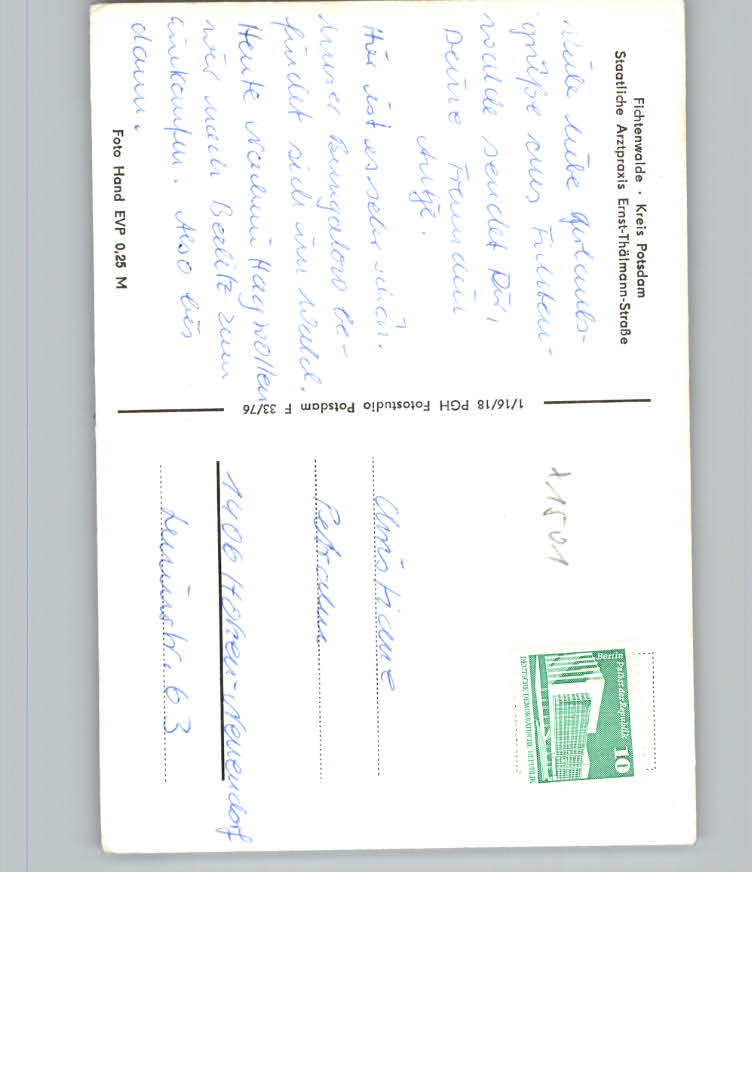 Fichtenwalde · Kreis Potsdam
Staatliche Arztpraxis Ernst-Thälmann-Straße
Viele liebe Urlaubs-
grüße aus Fichten-
walde sendet Dir,
Deine Freundin
Antje.
Hier ist es sehr schön.
Unser Bungalow be-
findet sich im Wald.
Heute Nachmittag wollen
wir nach Beelitz zum
einkaufen. Also bis
dann.
Foto Hand EVP 0,25 M
1/16/18 PGH Fotostudio Potsdam F 33/76
A1501
Berlin Palast der Republik
10
DEUTSCHE DEMOKRATISCHE REPUBLIK
Christiane
1406 Hohen-Neuendorf
Leninstr. 63